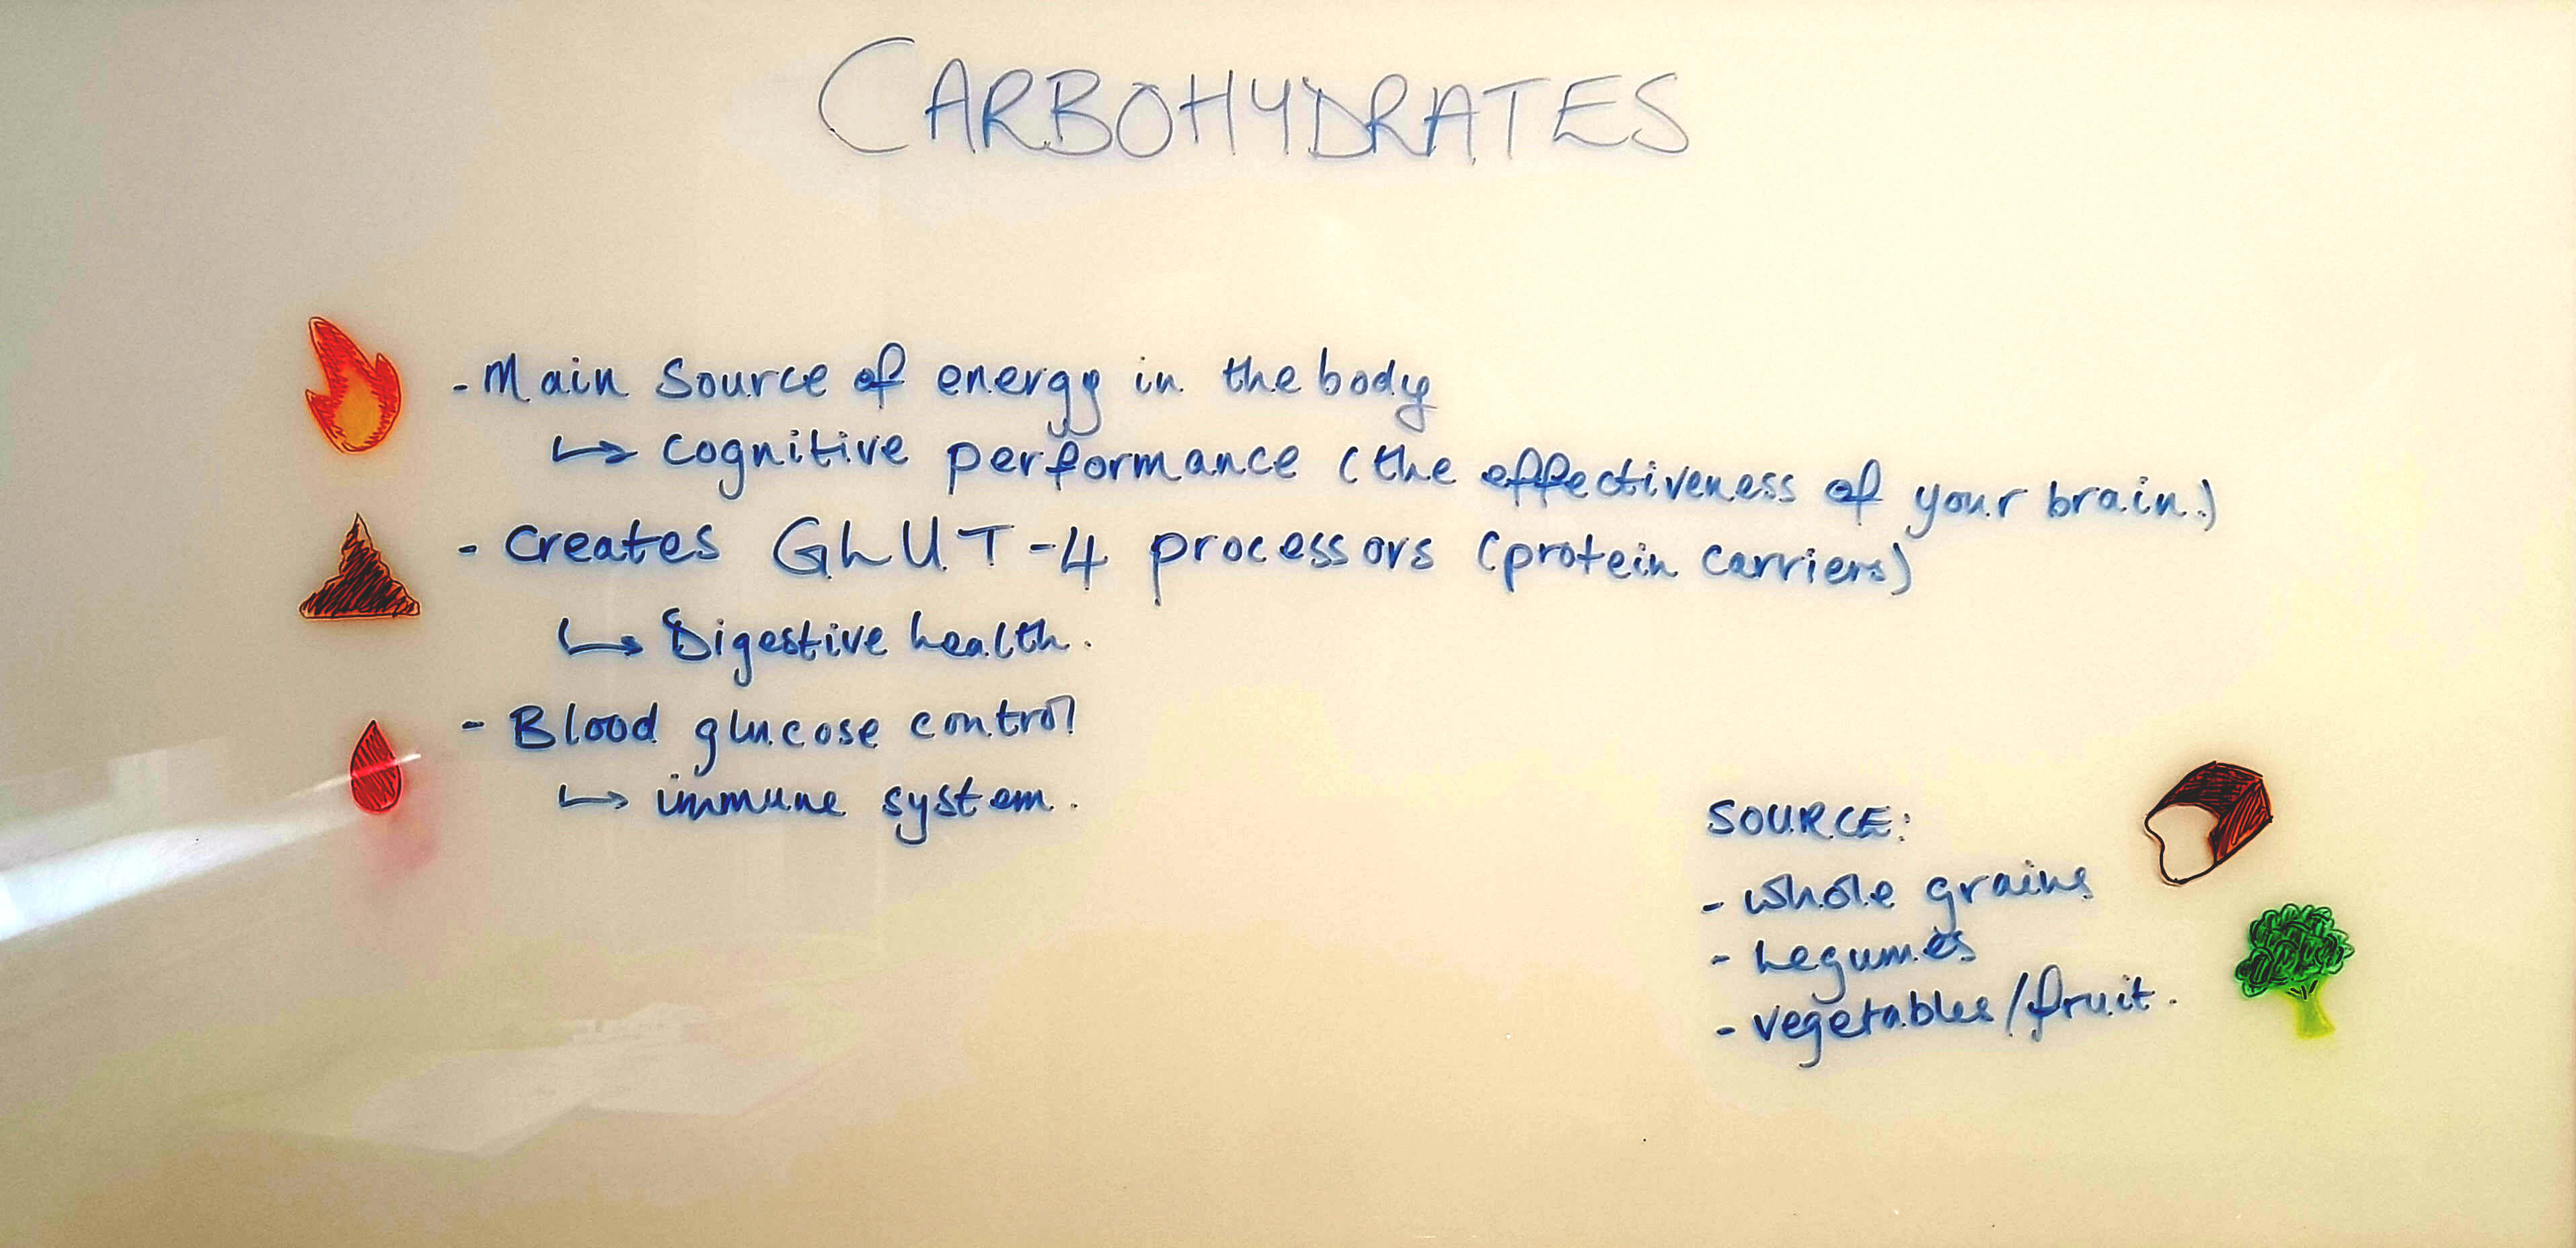 CARBOHYDRATES
- Main source of energy in the body
↳ cognitive performance (the effectiveness of your brain.)
- Creates GLUT-4 processors (protein carriers)
↳ Digestive health.
- Blood glucose control
↳ immune system.
SOURCE:
- whole grains
- Legumes
- vegetables/fruit.